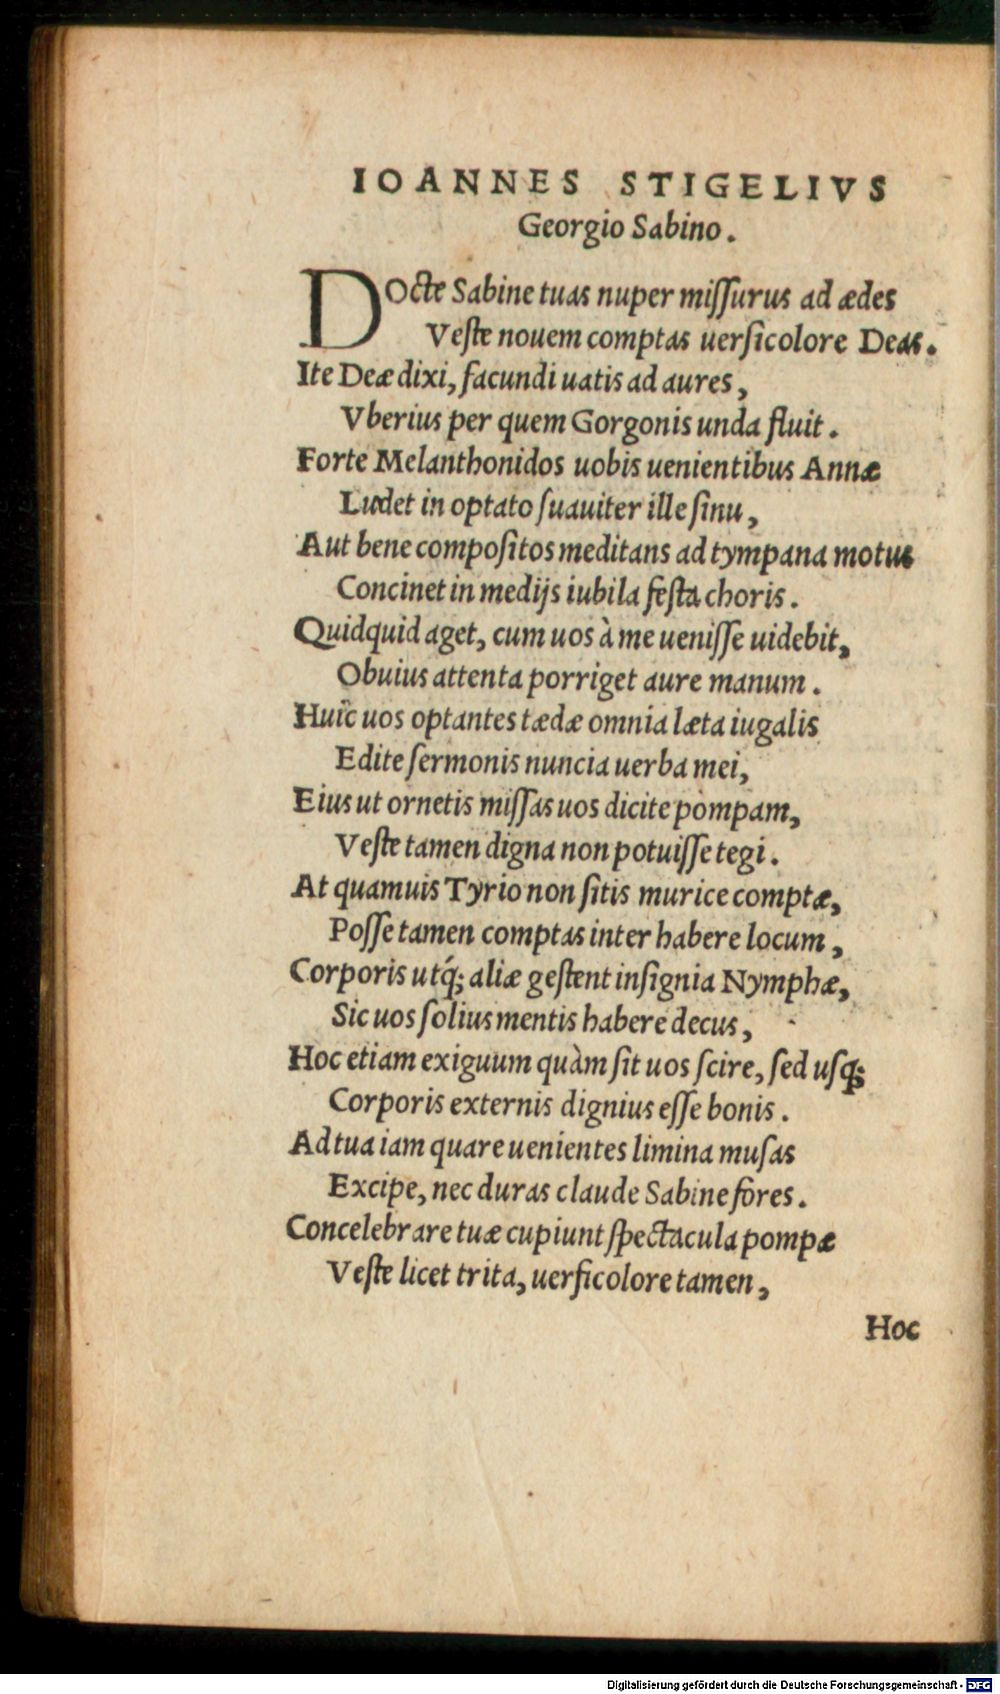 IOANNES STIGELIVS
Georgio Sabino.
DOcte Sabine tuas nuper miſſurus ad ædes
Veſte nouem comptas uerſicolore Deas.
Ite Deæ dixi, facundi uatis ad aures,
Vberius per quem Gorgonis unda fluit.
Forte Melanthonidos uobis uenientibus Annæ
Ludet in optato ſuauiter ille ſinu,
Aut bene compoſitos meditans ad tympana motus
Concinet in medijs iubila feſta choris.
Quidquid aget, cum uos à me ueniſſe uidebit,
Obuius attenta porriget aure manum.
Huic uos optantes tædæ omnia læta iugalis
Edite ſermonis nuncia uerba mei,
Eius ut ornetis miſſas uos dicite pompam,
Veſte tamen digna non potuiſſe tegi.
At quamuis Tyrio non ſitis murice comptæ,
Poſſe tamen comptas inter habere locum,
Corporis utq́; aliæ geſtent inſignia Nymphæ,
Sic uos ſolius mentis habere decus,
Hoc etiam exiguum quàm ſit uos ſcire, ſed uſq;
Corporis externis dignius eſſe bonis.
Ad tua iam quare uenientes limina muſas
Excipe, nec duras claude Sabine fores.
Concelebrare tuæ cupiunt ſpectacula pompæ
Veſte licet trita, uerſicolore tamen,
Hoc
Digitalisierung gefördert durch die Deutsche Forschungsgemeinschaft - DFG